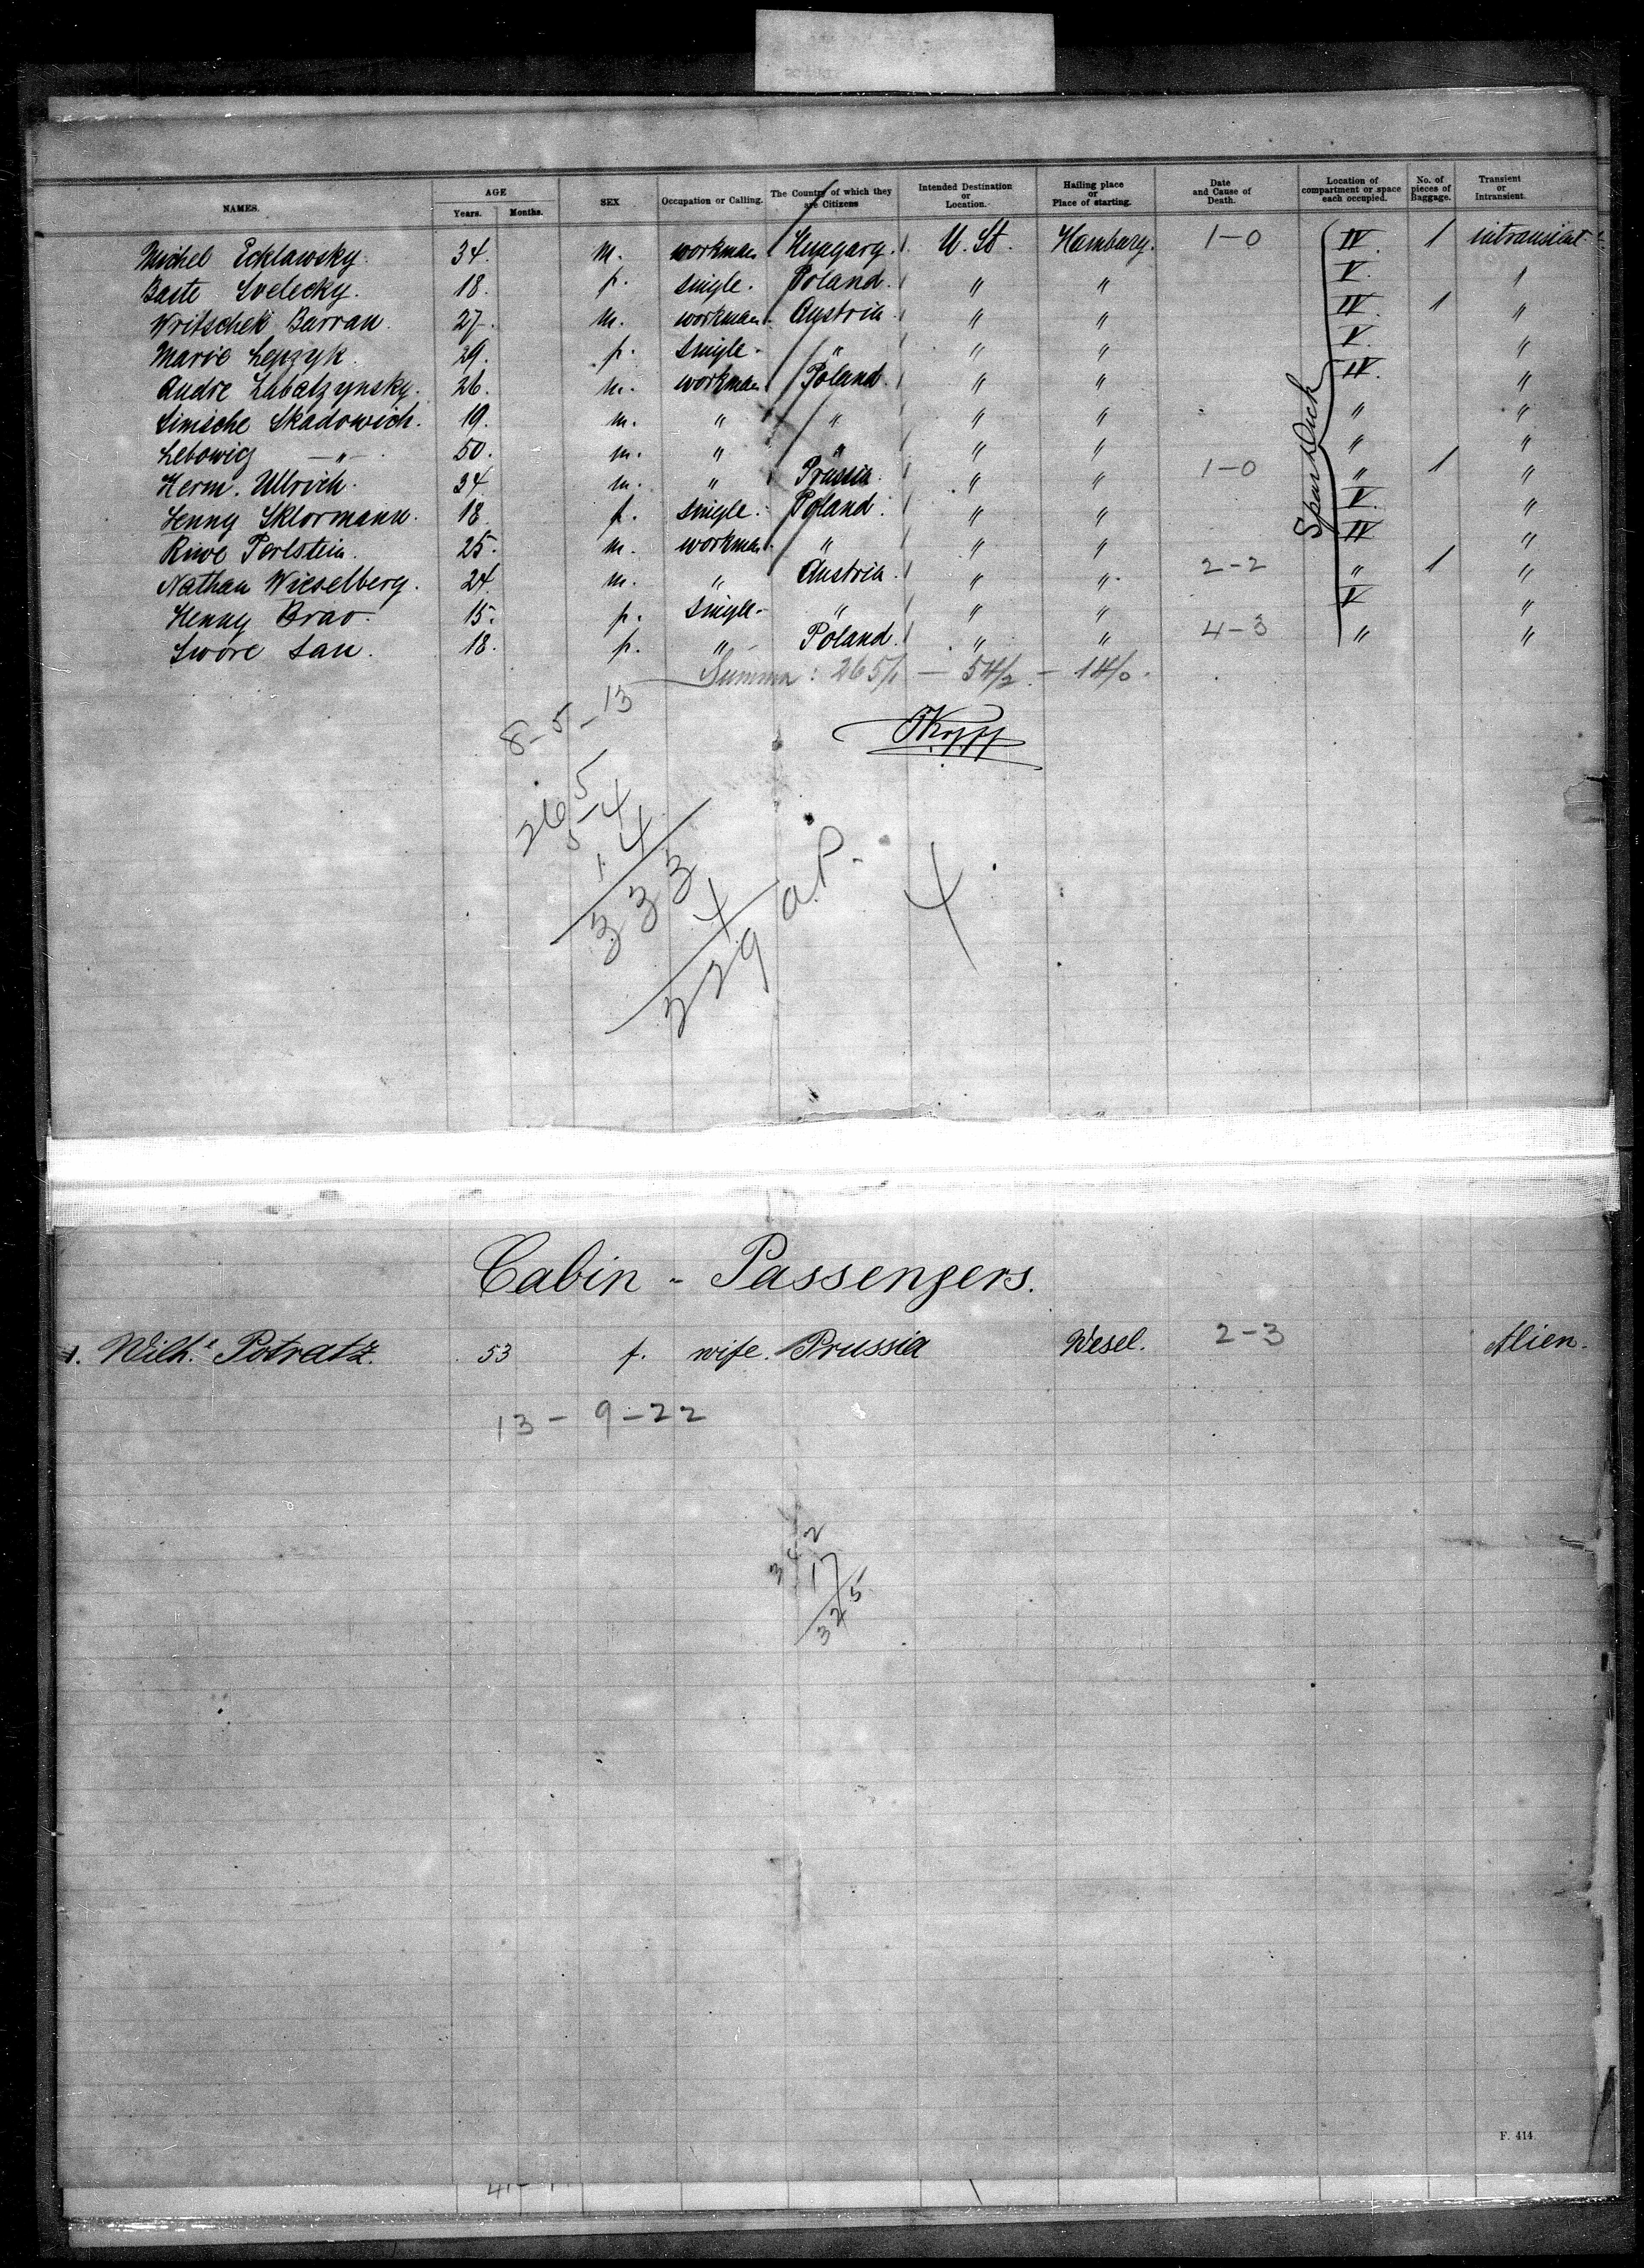 NAMES. AGE Years. Months. SEX Occupation or Calling. The Country of which they are Citizens Intended Destination or Location. Hailing place or Place of starting. Date and Cause of Death. Location of compartment or space each occupied. No. of pieces of Baggage. Transient or Intransient.
Michel Ecklawsky. 34. m. workman Hungary. U. St. Hamburg. 1-0 IV. 1 intransient
Baste Svelecky. 18. f. single. Poland. " " V. "
Writschek Barran. 27. m. workman Austria " " IV. 1 "
Marie Lepzyk. 29. f. single. " " " V. "
Andre Labatzynsky. 26. m. workman Poland. " " IV. "
Simsche Skadowich. 19. m. " " " " " "
Lebowig — " — 50. m. " " " " " "
Herm. Ullrich. 34. m. " Prussia. " " 1-0 " 1 "
Henny Sklormann. 18. f. single. Poland. " " V. "
Riwe Perlstein. 25. m. workman " " " IV "
Nathan Wieselberg. 24. m. " Austria. " " 2-2 " 1 "
Henny Brav. 15. f. single. " " " V "
Swore Lan. 18. f. " Poland. " " 4-3 " "
Spar Deck
Summa: 265/1 — 54/2 — 14/0.
8-5-13
265
54
14
333
4
329
a.P.
4
Cabin - Passengers.
1. Wilh.e Potratz. 53 f. wife. Prussia Wesel. 2-3 Alien.
13 - 9 - 22
342
17
325
F. 414.